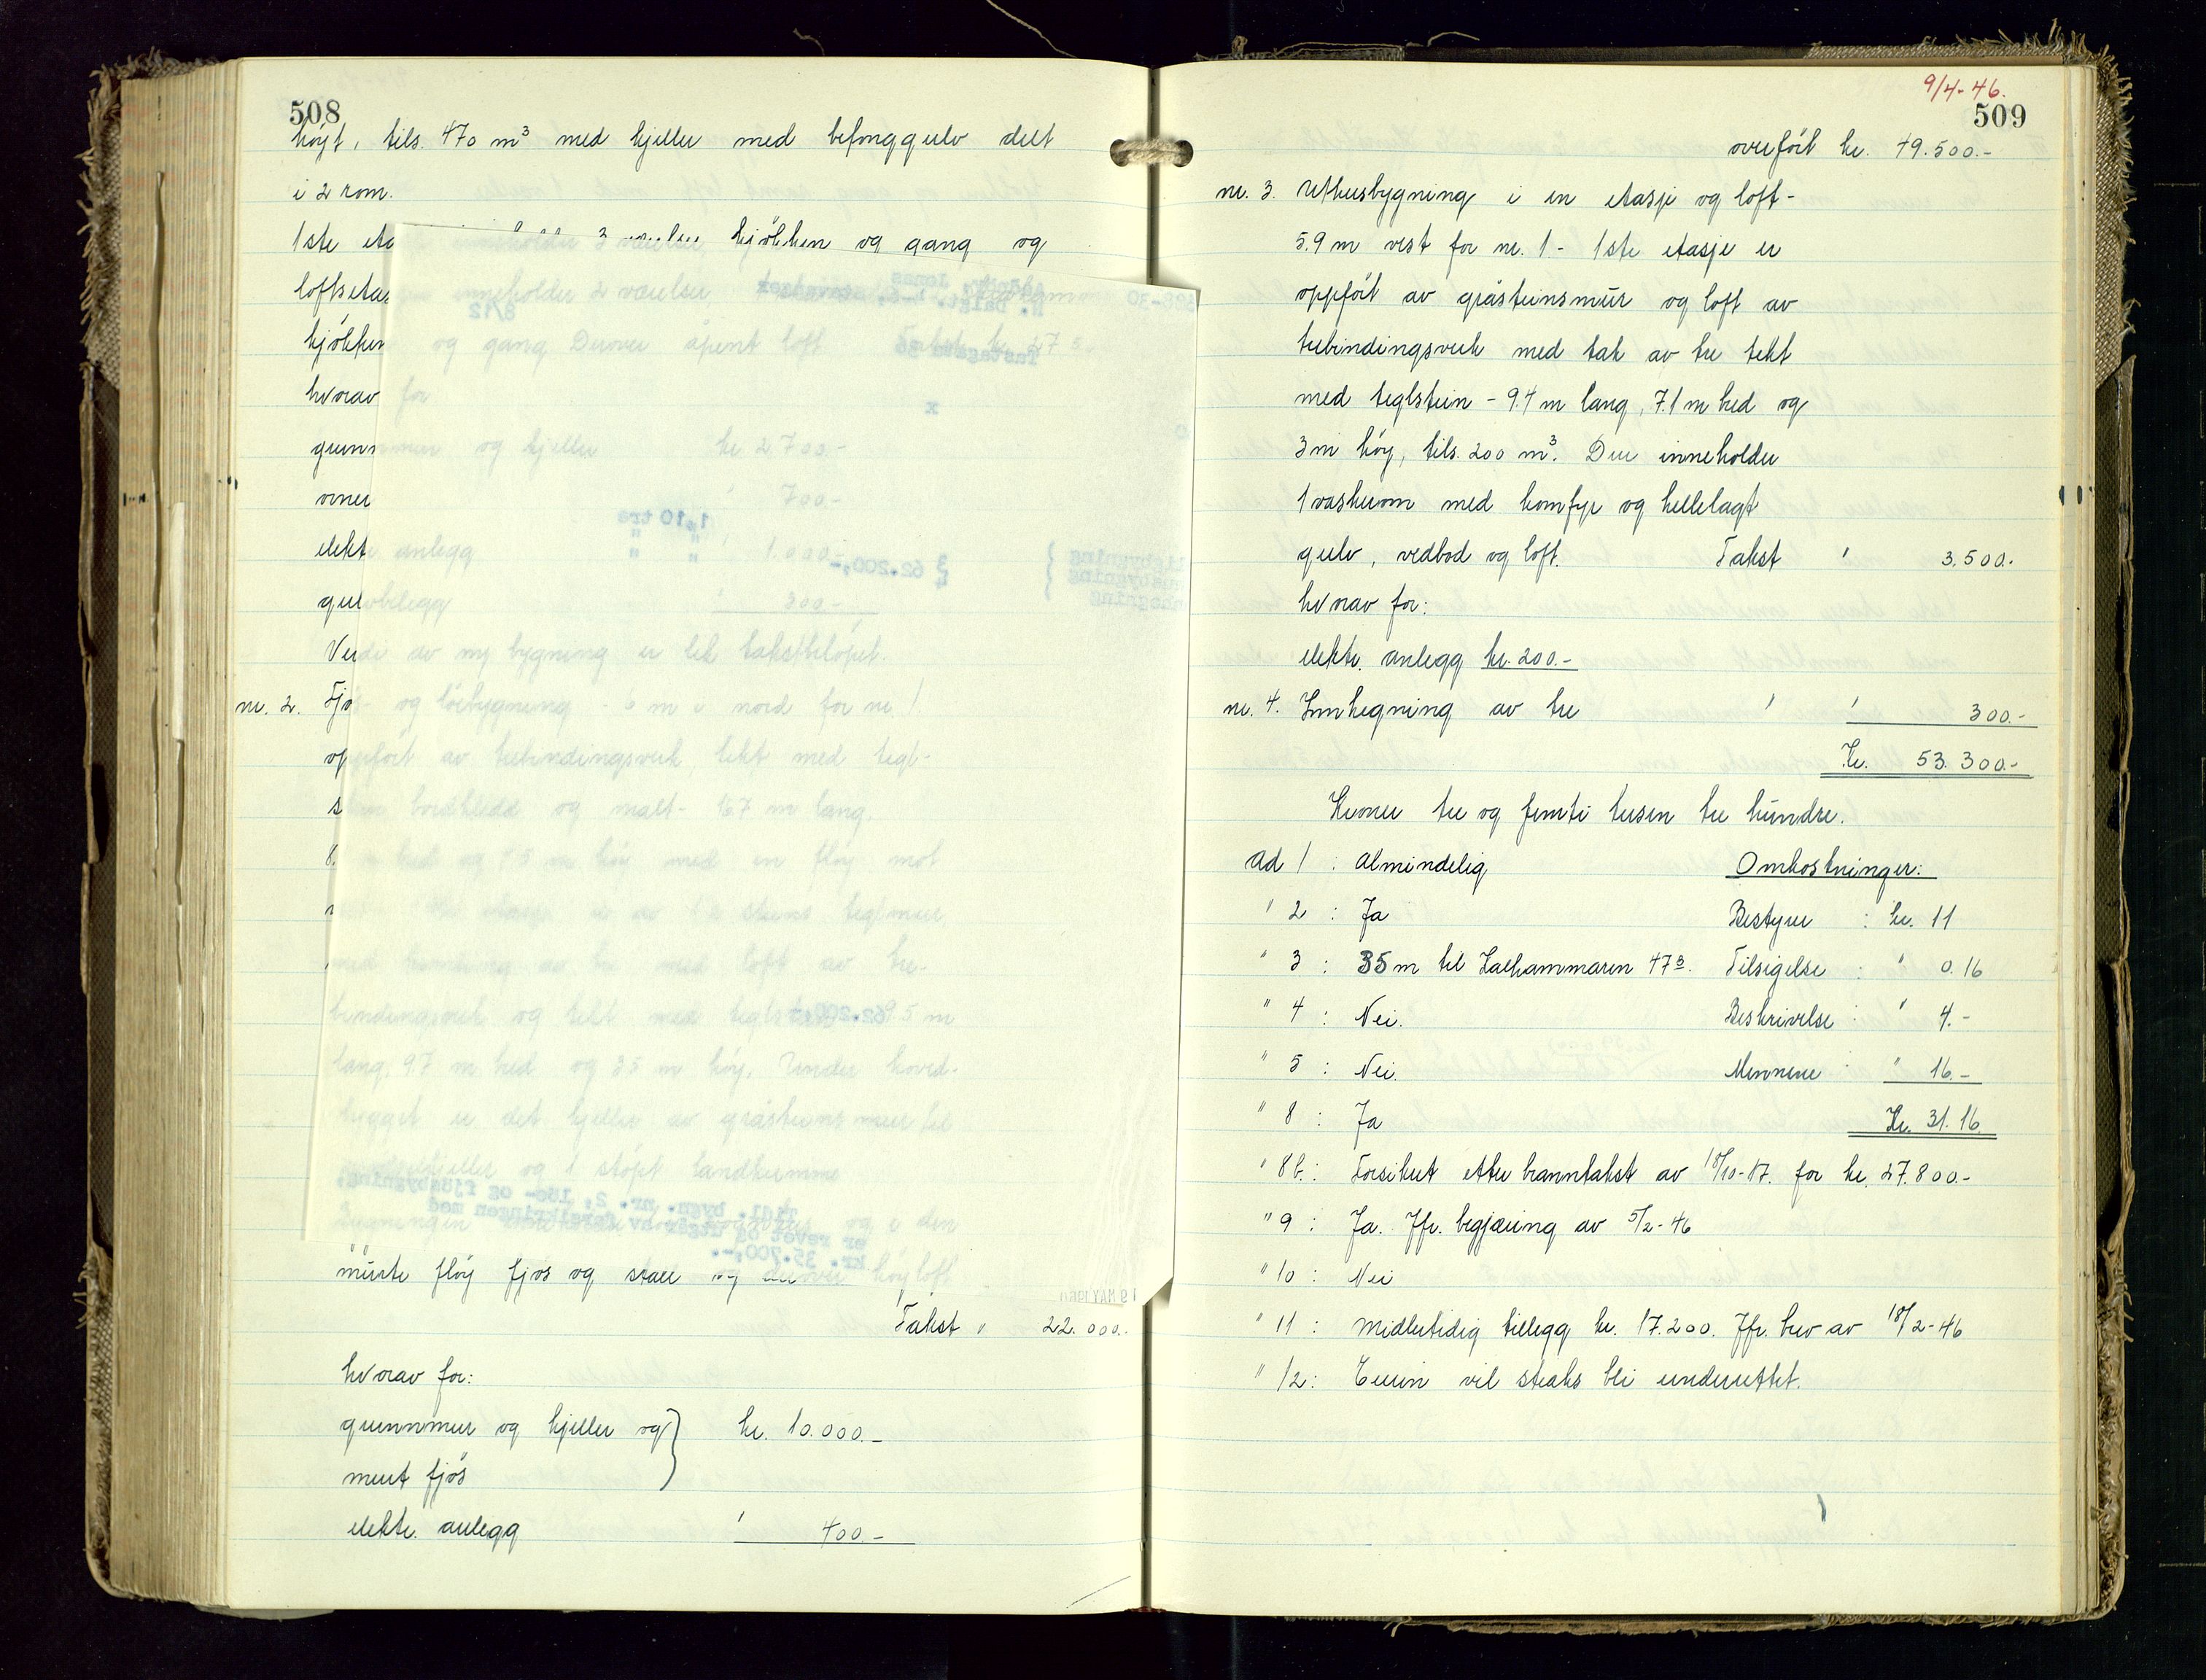 508
höyt, tils. 470 m³ med kjeller med betonggulv delt
i 2 rom.
1ste etasje inneholder 3 værelser, kjökken og gang og
loftsetasjen inneholder 2 værelser,
kjökken og gang. Derover åpent loft Takst kr. 27.5
hvorav for
grunnmur og kjeller kr 2.700.-
ovner " 700.-
elektr. anlegg " 1.000.-
gulvbelegg " 300.-
Verdi av ny bygning er lik takstbelöpet.
nr. 2. Fjös- og löebygning - 6 m i nord for nr 1.
oppfört av trebindingsverk, tekt med tegl-
sten bordkledd og malt- 16.7 m lang,
8. m bred og 7.5 m höy med en flöy mot
1ste etasje er av 1/2 steins teglmur
med hemling av tre med loft av tre-
bindingsverk og tekt med teglstein 9.5 m
lang, 9.7 m bred og 3.5 m höy. Under hoved-
bygget er det kjeller av gråsteinsmur til
kjeller og 1 stöpt landkumme
Bygningen og i den
murte flöy fjös og stall og derover höyloft
Takst " 22.000.-
hvorav for:
grunnmur og kjeller og } kr. 10.000.-
murt fjös
elektr. anlegg " 400.-
62.200,-
1,10 tre
62.200,-
Tigl. bygn. nr. 2, löe- og fjösbygning,
er revet og utgår av forsikringen med
kr. 35.700,-.
19 MAY 1960
9/4-46.
509
overfört kr. 49.500.-
nr. 3. Uthusbygning i en etasje og loft-
5.9 m vest for nr. 1 - 1ste etasje er
oppfört av gråsteinsmur og loft av
trebindingsverk med tak av tre tekt
med teglstein - 9.4 m lang, 7.1 m bred og
3 m höy, tils. 200 m³. Den inneholder
1 vaskerom med komfyr og hellelagt
gulv, vedbod og loft. Takst " 3.500.-
hvorav for:
elektr. anlegg kr. 200.-
nr. 4. Innhegning av tre " " 300.-
Kr. 53.300.-
Kroner tre og femti tusen tre hundre.
Ad 1 : Almindelig Omkostninger:
" 2 : Ja Bestyrer : kr. 11
" 3 : 35 m til Kalhammaren 47ᵃ. Tilsigelse : " 0.16
" 4 : Nei. Beskrivelse : " 4.-
" 5 : Nei. Mennene : " 16.-
" 8 : Ja Kr. 31.16
" 8b. : Forsikret etter branntakst av 18/10-17. for kr. 27.800.-
" 9 : Ja. Jfr. begjæring av 5/2-46
" 10 : Nei
" 11 : Midlertidig tillegg kr. 17.200. Jfr. brev av 18/2-46
" 12 : Eieren vil straks bli underrettet.